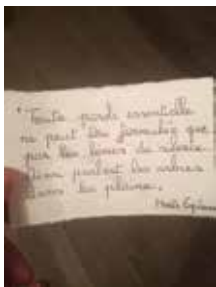 "Toute parole essentielle
ne peut être formulée que
par les lèvres du silence.
Ainsi parlent les arbres
dans la plaine.